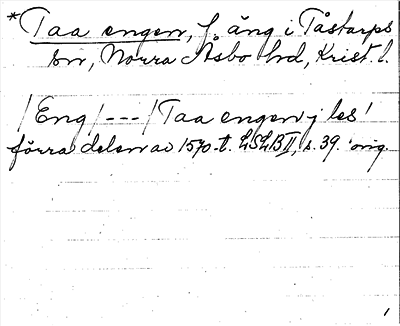 *Taa engen, f. äng i Tåstarps
sn, Norra Åsbo hd, Krist. l.
/Eng/---/Taa engen j les!
förra delen av 1570-t. LSLB II, s. 39. orig.